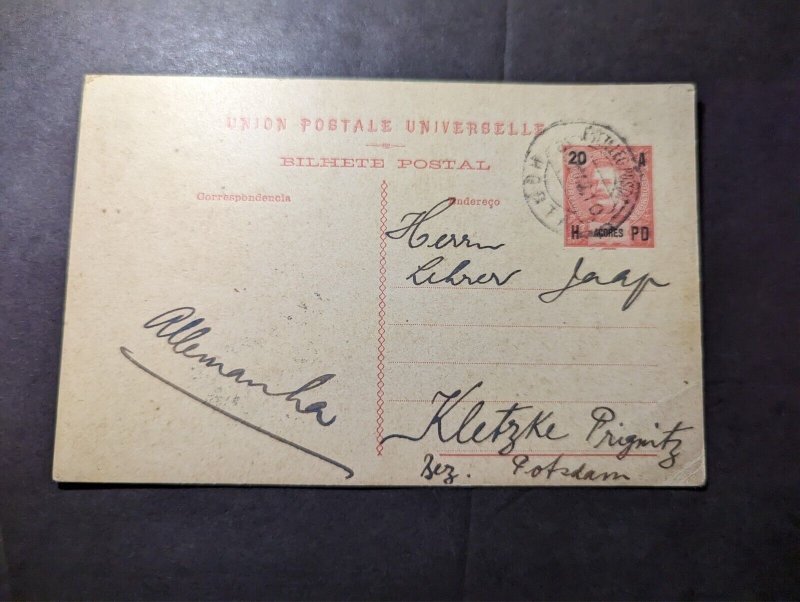 UNION POSTALE UNIVERSELLE
BILHETE POSTAL
Correspondencia
Endereço
20 A
H. AÇORES PD
Herrn
Lehrer Jaap
Allemanha
Kletzke Prignitz
Bez. Potsdam